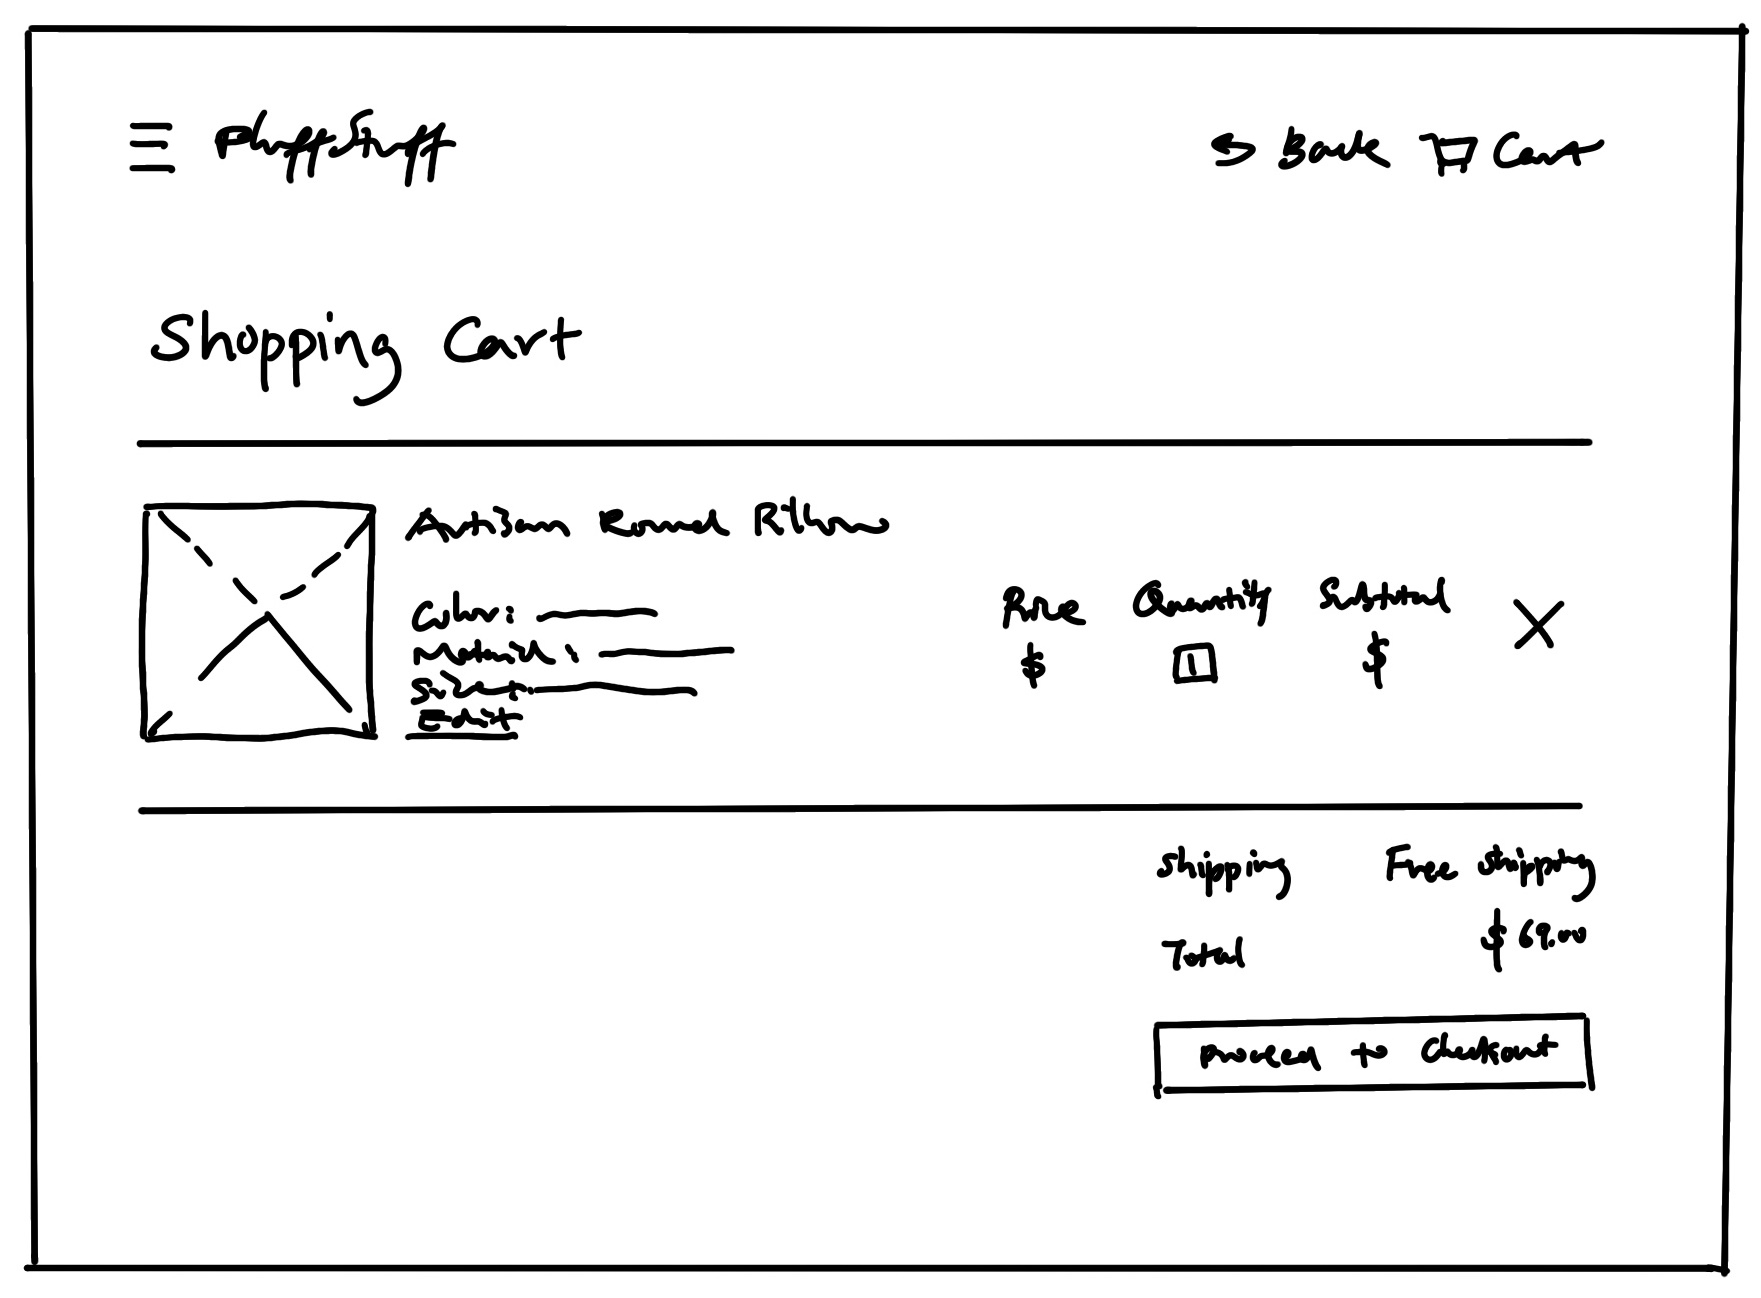 FluffStuff
Back Cart
Shopping Cart
Artisan Round Pillow
Color:
Material:
Edit
Price Quantity Subtotal
$ 1 $
Shipping Free shipping
Total $69.00
Proceed to Checkout